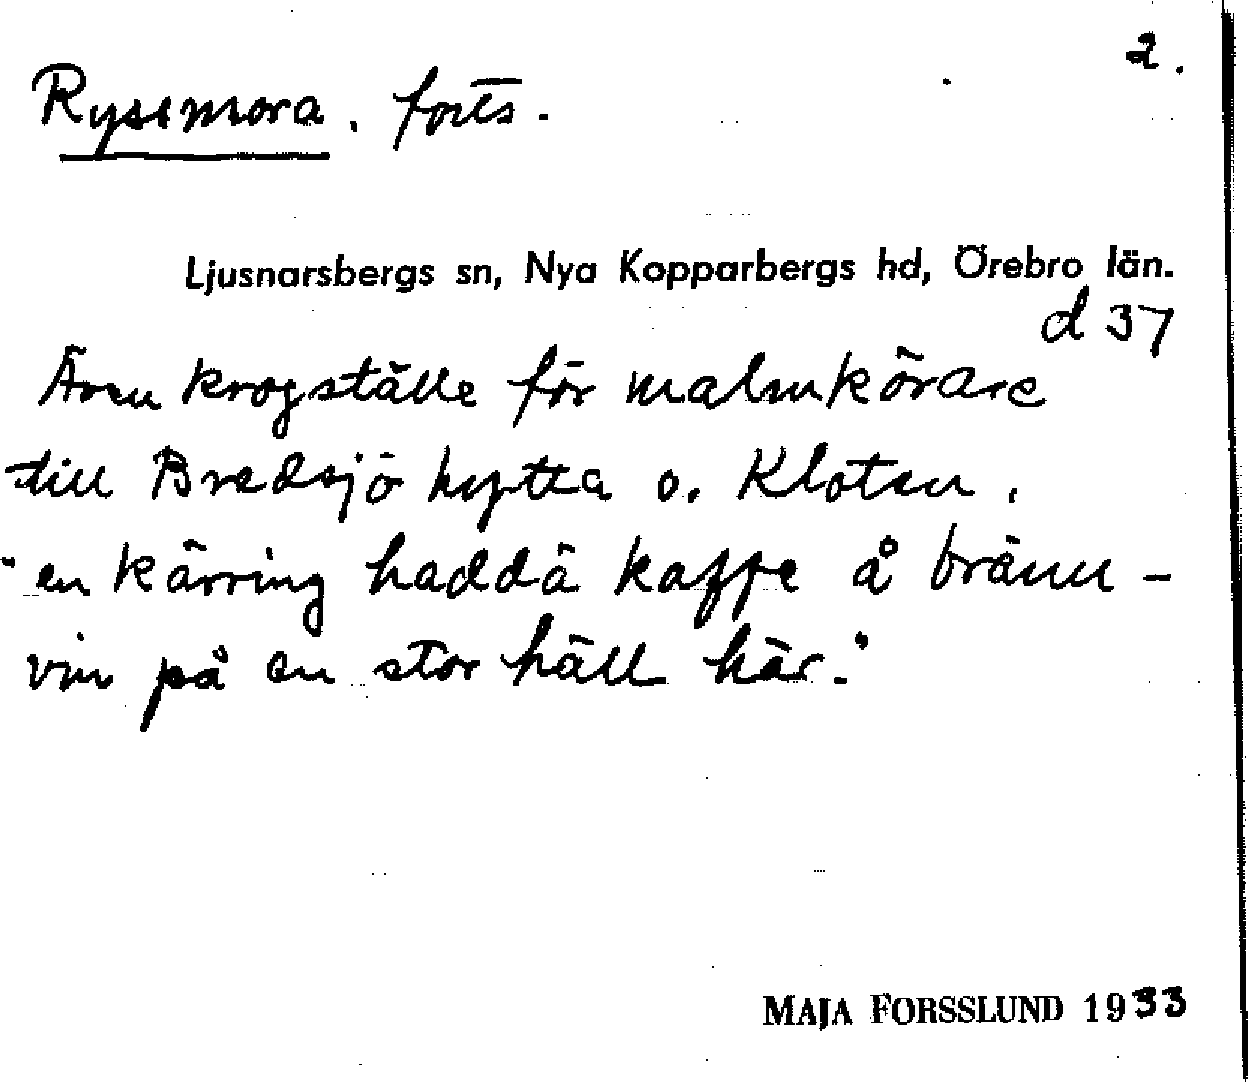 2.
Rysemora. forts.
Ljusnarsbergs sn, Nya Kopparbergs hd, Örebro län.
d 37
Även krogställe för malmkörare
till Bredsjö hytta o. Kloten.
"en kärring haddä kaffe å bränn-
vin på en stor häll här."
MAJA FORSSLUND 1933